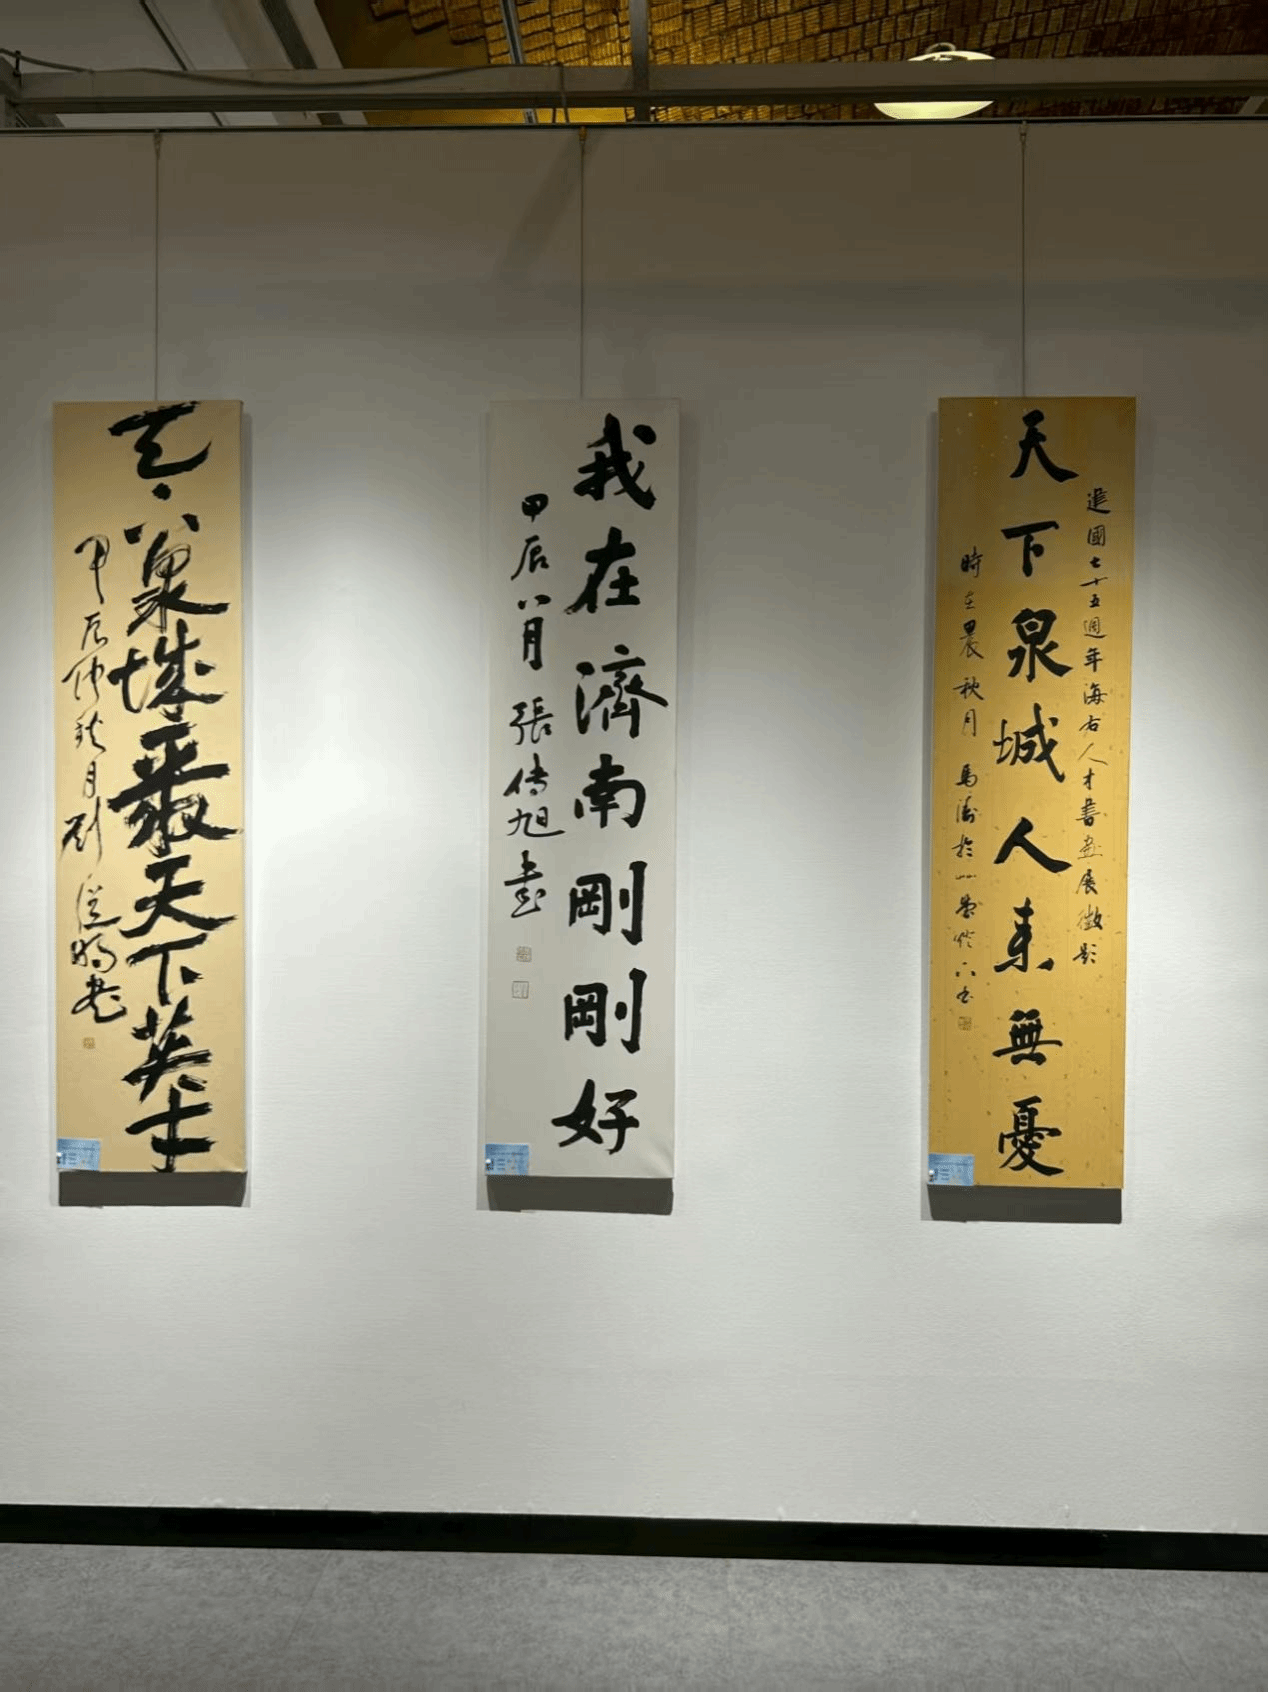 建國七十五週年海右人才書畫展徵
天下泉城人來無憂
時在甲辰秋月 馬濤於
我在濟南剛剛好
甲辰八月 張傳旭書
天下泉城聚天下英士
甲辰仲秋月劉